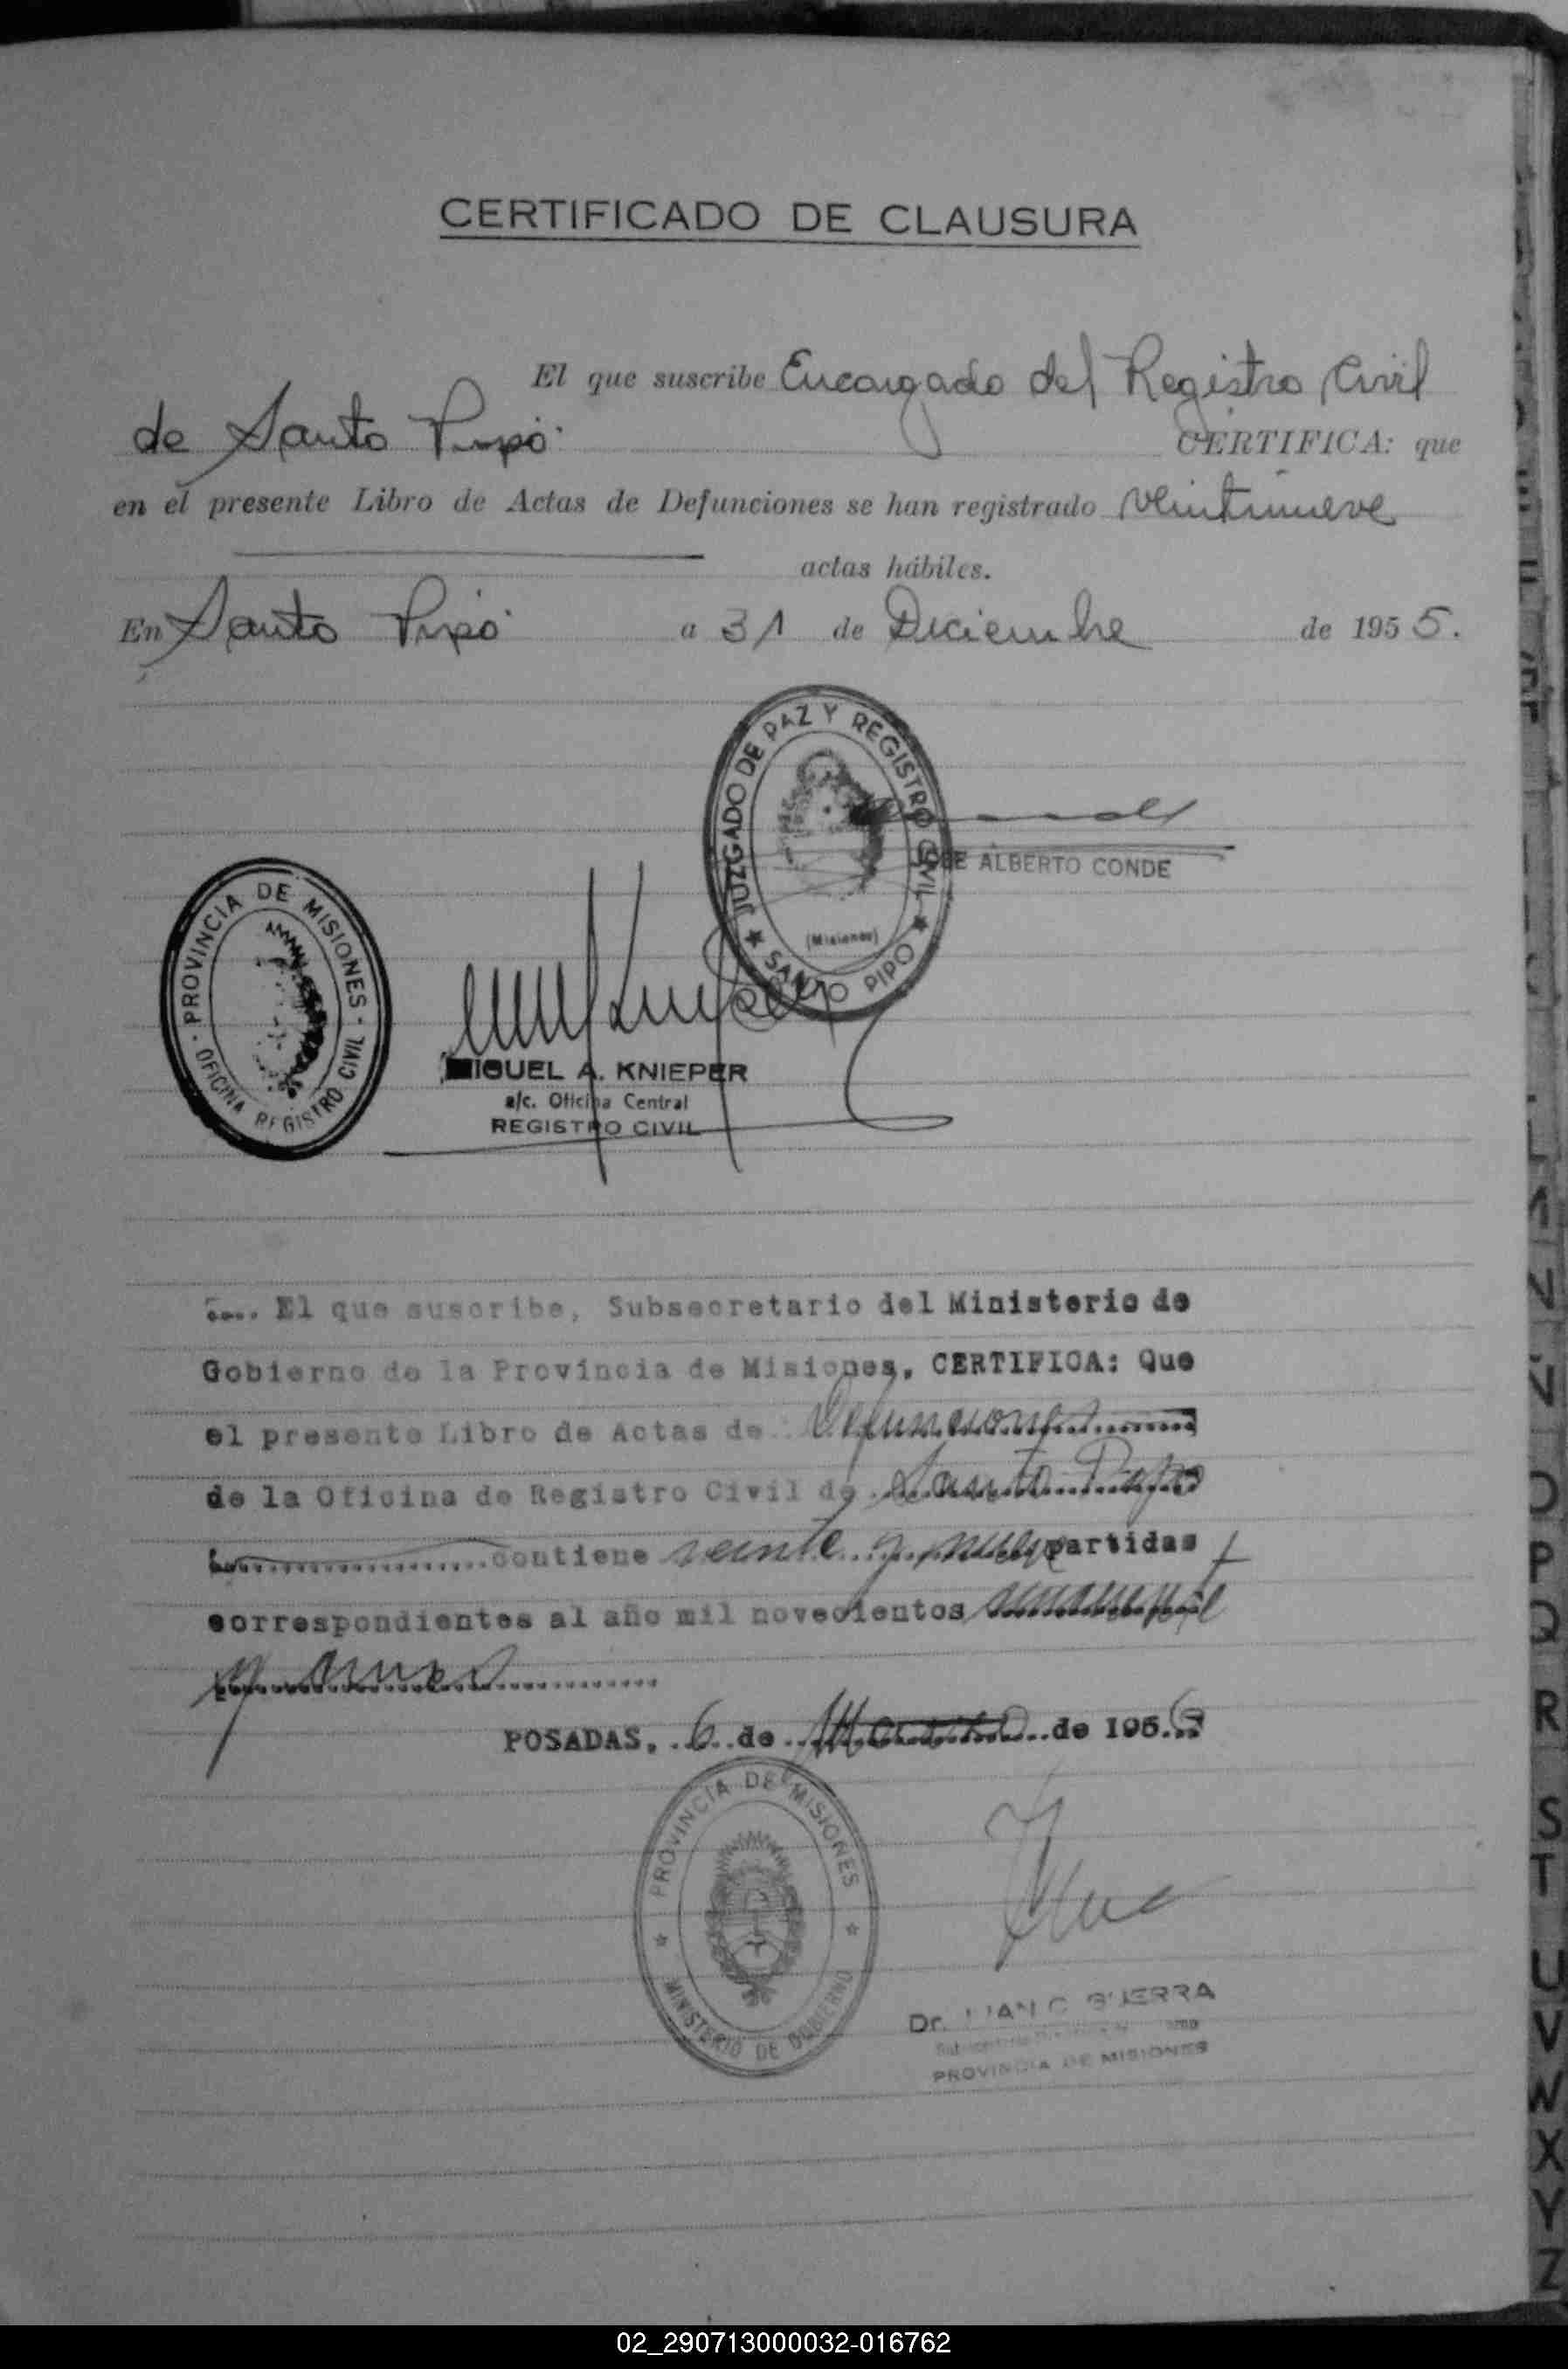 CERTIFICADO DE CLAUSURA
El que suscribe Encargado del Registro Civil
de Santo Pipó. CERTIFICA: que
en el presente Libro de Actas de Defunciones se han registrado veintinueve
actas hábiles.
En Santo Pipó a 31 de Diciembre de 1955.
JUZGADO DE PAZ Y REGISTRO CIVIL
(Misiones)
SANTO PIPO
JOSE ALBERTO CONDE
PROVINCIA DE MISIONES
OFICINA REGISTRO CIVIL
MIGUEL A. KNIEPER
a/c. Oficina Central
REGISTRO CIVIL
El que suscribe, Subsecretario del Ministerio de
Gobierno de la Provincia de Misiones, CERTIFICA: Que
el presente Libro de Actas de Defunciones
de la Oficina de Registro Civil de Santo Pipo
contiene veinte y nueve partidas
correspondientes al año mil novecientos cincuenta
y cinco
POSADAS, 6 de Marzo de 1956
PROVINCIA DE MISIONES
MINISTERIO DE GOBIERNO
Dr. JUAN C. GUERRA
PROVINCIA DE MISIONES
L
M
N
Ñ
O
P
Q
R
S
T
U
V
W
X
Y
Z
02_290713000032-016762